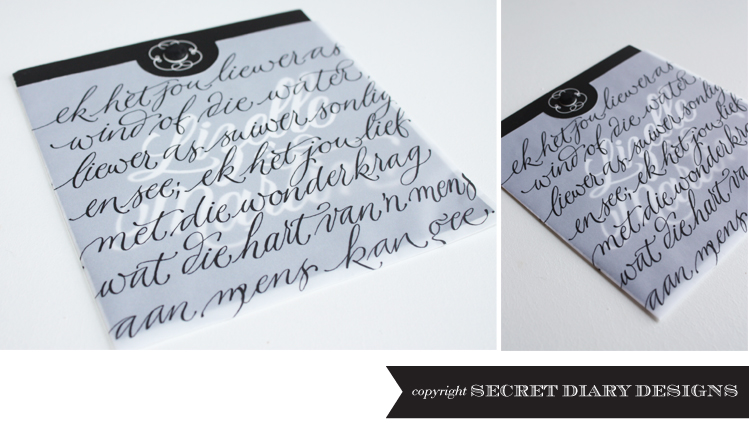 ek het jou liewer as
wind of die water
liewer as suiwer sonlig
en see; ek het jou lief
met die wonderkrag
wat die hart van 'n mens
aan mens kan gee.
ek het jou liewer as
wind of die water
liewer as suiwer sonlig
en see; ek het jou lief
met die wonderkra
wat die hart va
aan mens
copyright SECRET DIARY DESIGNS